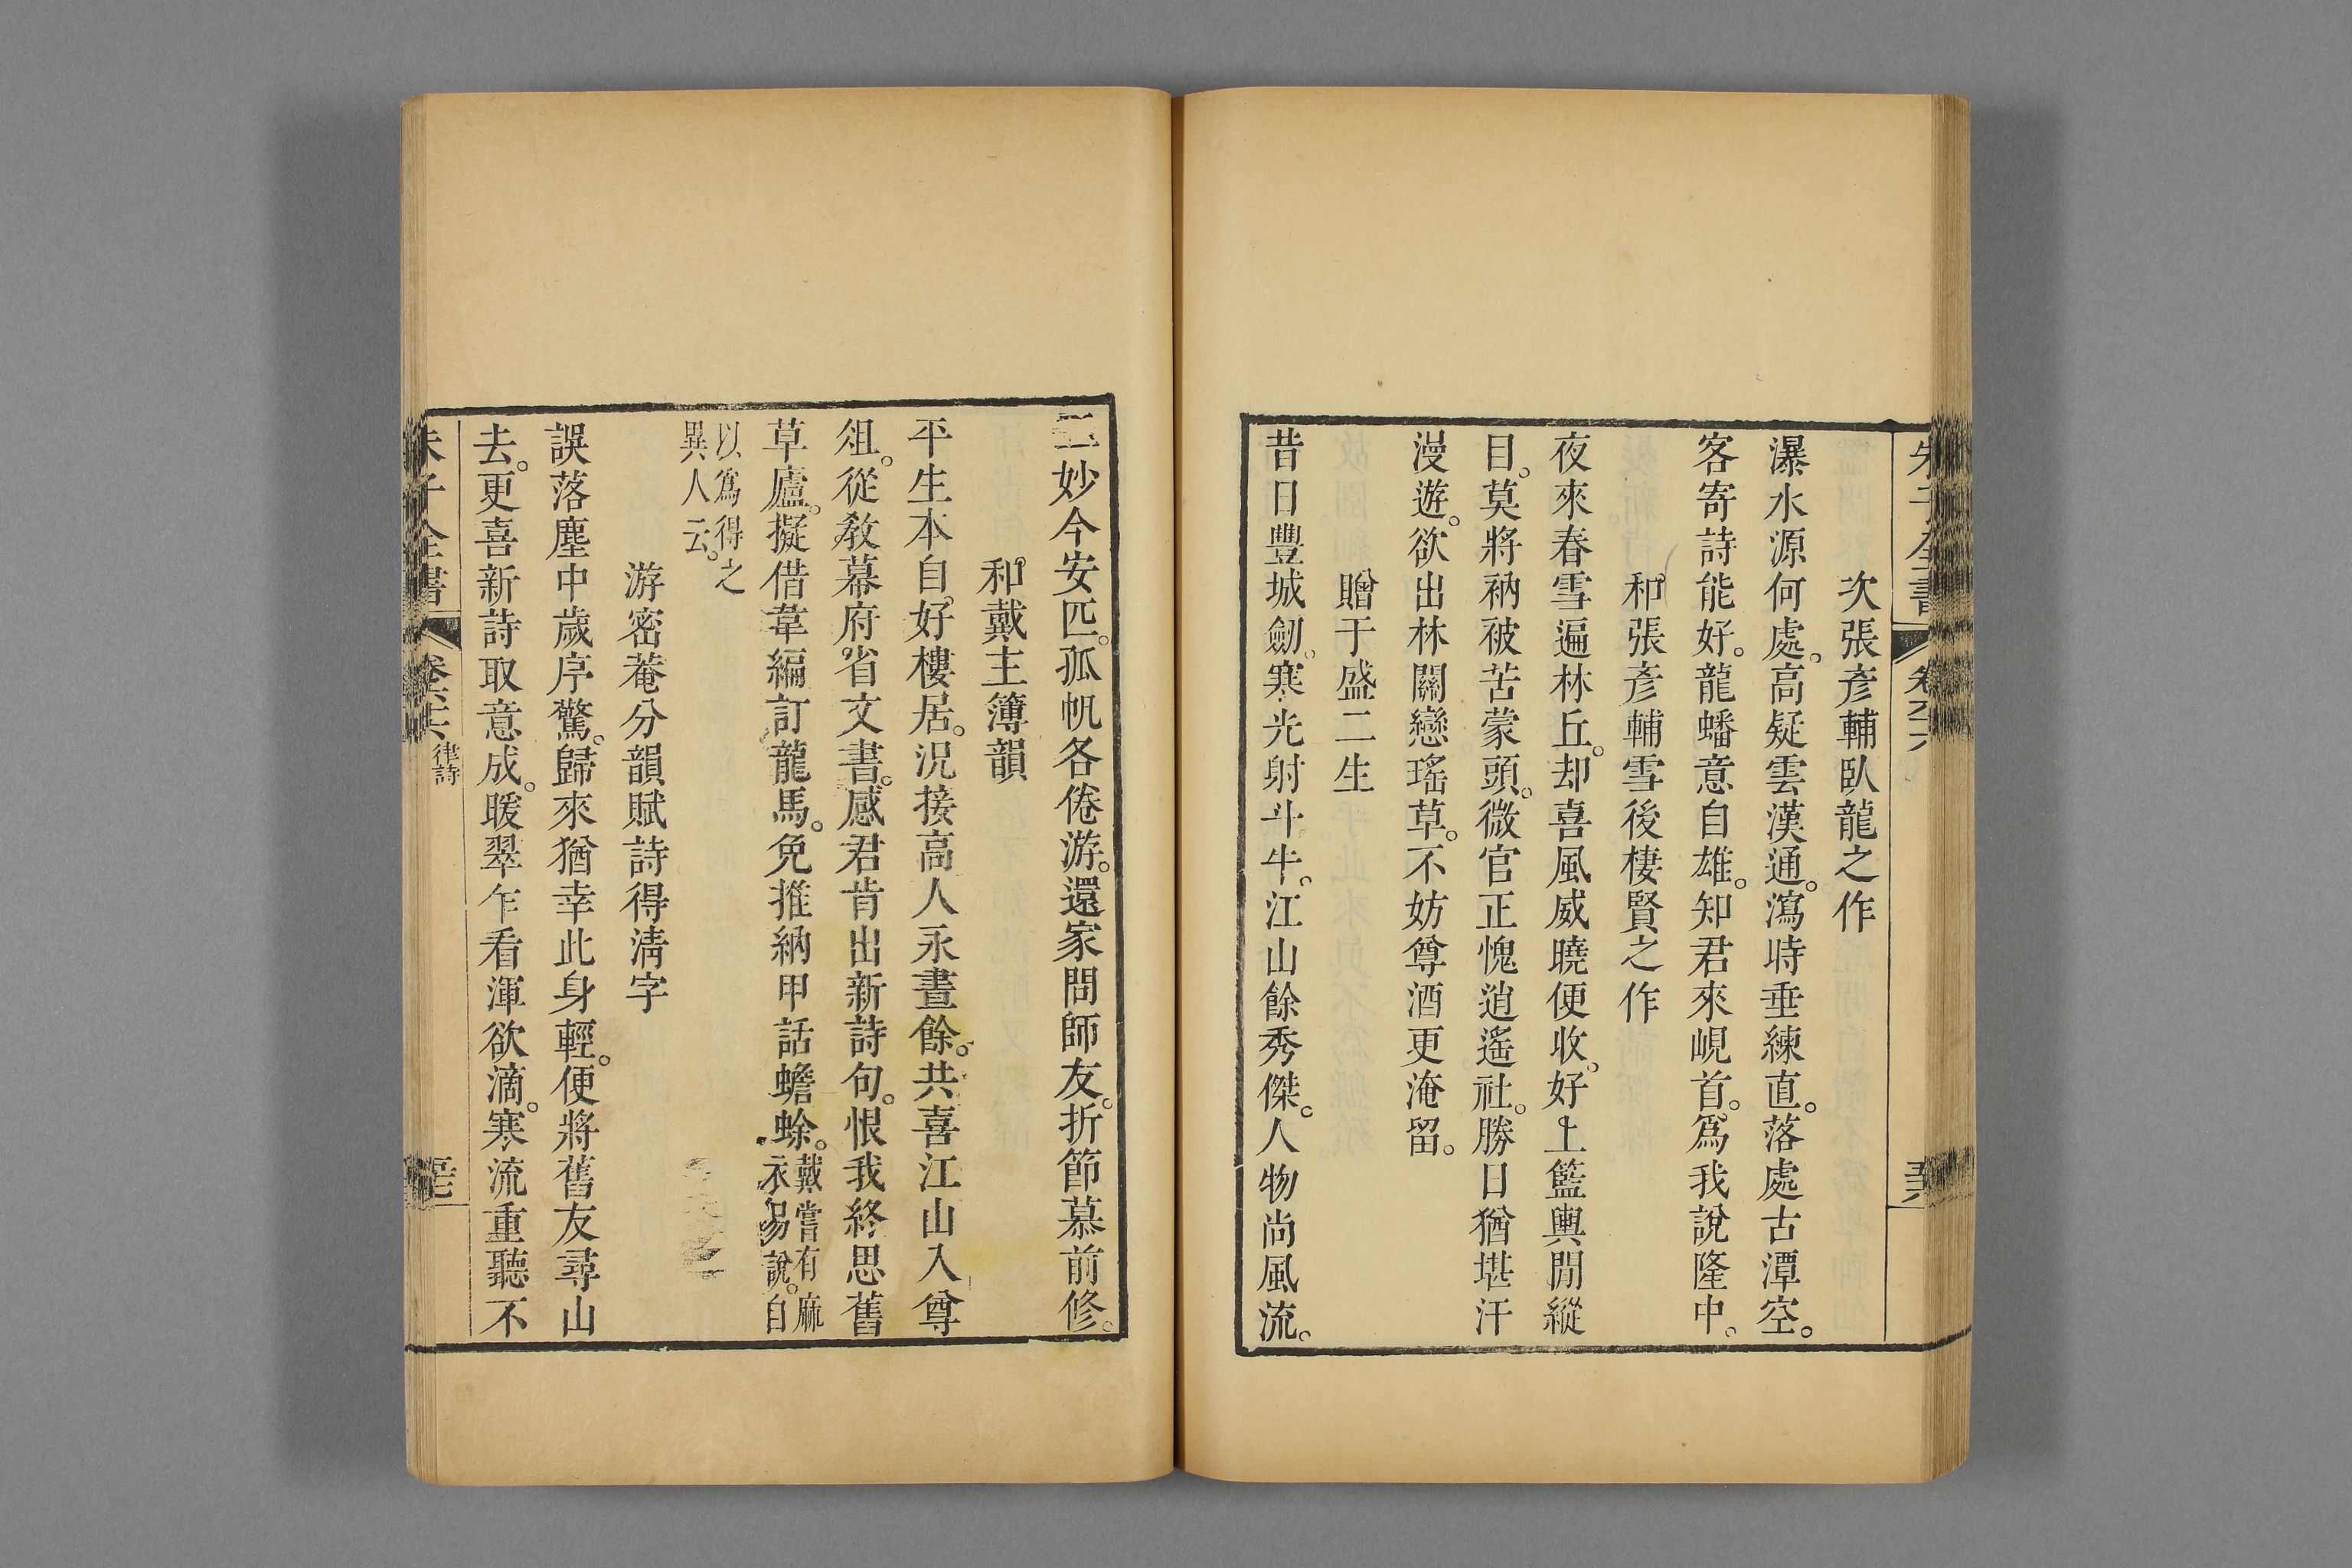 朱子全書 卷六十六
次張彥輔臥龍之作
瀑水源何處。高疑雲漢通。瀉時垂練直。落處古潭空。
客寄詩能好。龍蟠意自雄。知君來峴首。爲我說隆中。
和張彥輔雪後棲賢之作
夜來春雪遍林丘。却喜風威曉便收。好上籃輿閒縱
目。莫將衲被苦蒙頭。微官正愧逍遙社。勝日猶堪汗
漫遊。欲出林關戀瑤草。不妨尊酒更淹留。
贈于盛二生
昔日豐城劒。寒光射斗牛。江山餘秀傑。人物尚風流。
二妙今安匹。孤帆各倦游。還家問師友。折節慕前修。
和戴主簿韻
平生本自好樓居。况接高人永晝餘。共喜江山入尊
俎。從敎幕府省文書。感君肯出新詩句。恨我終思舊
草廬。擬借韋編訂龍馬。免推納甲話蟾蜍。戴嘗有麻衣易說。自
以爲得之異人云。
游密菴分韻賦詩得清字
誤落塵中歲序驚。歸來猶幸此身輕。便將舊友尋山
去。更喜新詩取意成。暖翠乍看渾欲滴。寒流重聽不
朱子全書 卷六十六 律詩